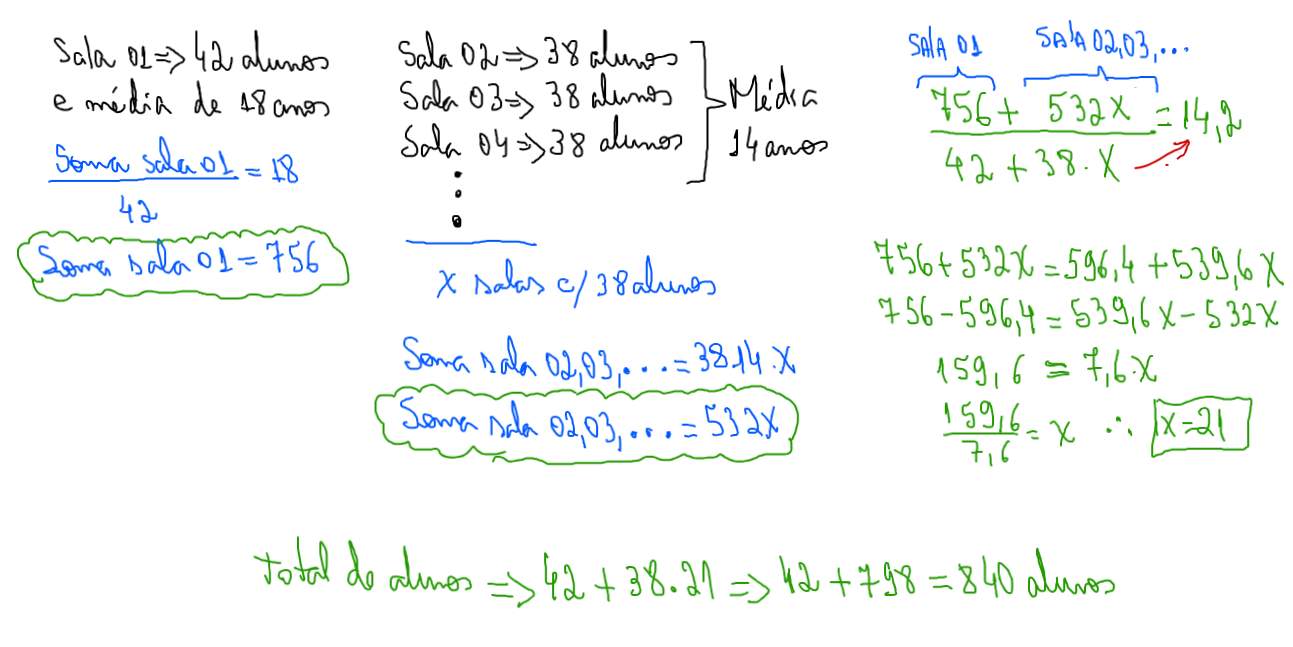 Sala 01 => 42 alunos
e média de 18 anos
Soma sala 01 = 18
42
Soma sala 01 = 756
Sala 02 => 38 alunos
Sala 03 => 38 alunos
Sala 04 => 38 alunos
Média
14 anos
x salas c/ 38 alunos
Soma sala 02,03,... = 38.14.x
Soma sala 02,03,... = 532x
SALA 01
SALA 02,03,...
756 + 532x = 14,2
42 + 38.x
756 + 532x = 596,4 + 539,6x
756 - 596,4 = 539,6x - 532x
159,6 = 7,6.x
159,6 = x ∴ x = 21
7,6
total de alunos => 42 + 38.21 => 42 + 798 = 840 alunos